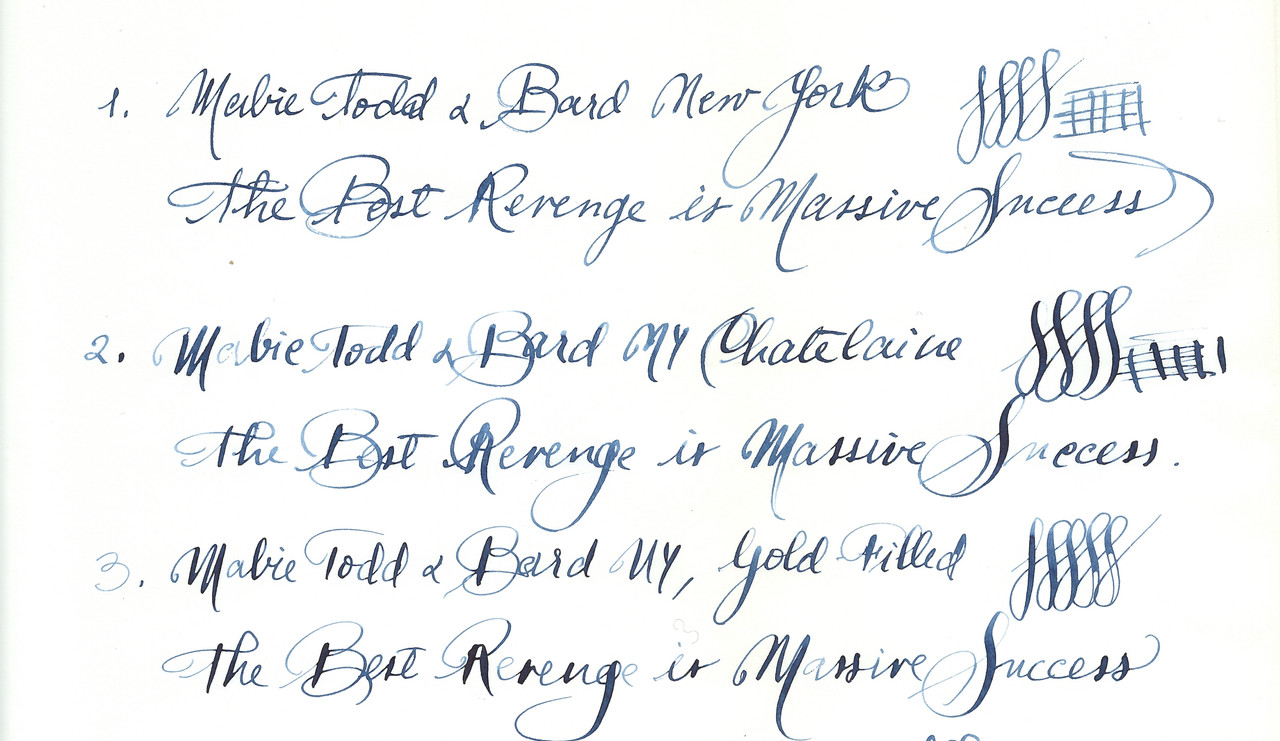 1. Mabie Todd & Bard New York
The Best Revenge is Massive Success
2. Mabie Todd & Bard NY (Chatelaine
The Best Revenge is Massive Success.
3. Mabie Todd & Bard NY, Gold Filled
The Best Revenge is Massive Success